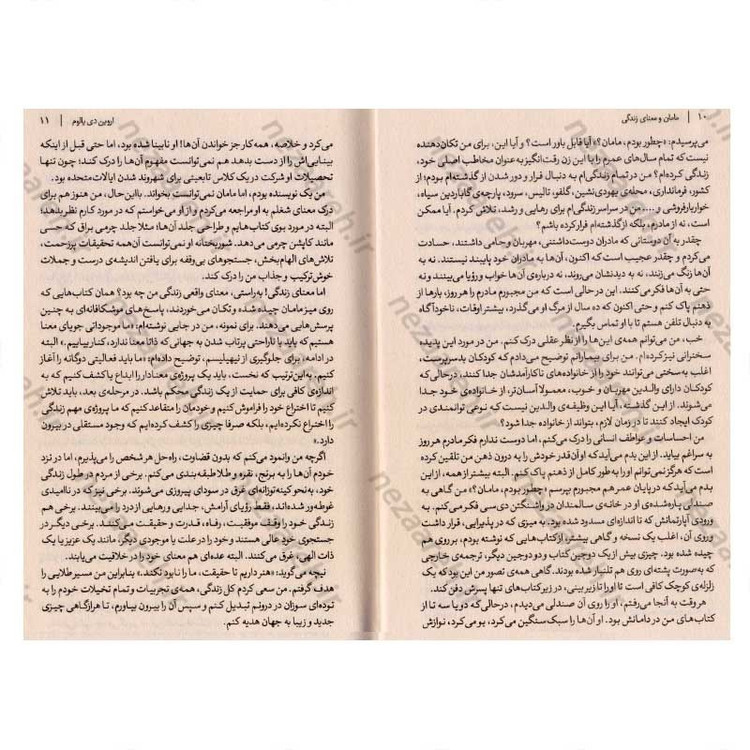 ۱۰ | مامان و معنای زندگی
می‌پرسیدم: «چطور بودم، مامان؟» آیا قابل باور است؟ و آیا این، برای من تکان‌دهنده
نیست که تمام سال‌های عمرم را با این زن رقت‌انگیز به عنوان مخاطب اصلی خود،
زندگی کرده‌ام؟ من در تمام زندگی‌ام به دنبال فرار و دور شدن از گذشته‌ام بودم؛ از
کشور، فرمانداری، محله‌ی یهودی‌نشین، گلفو، تالیس، سرود، پارچه‌ی گاباردین سیاه،
خواربارفروشی و.... من در سراسر زندگی‌ام برای رهایی و رشد، تلاش کردم. آیا ممکن
است، نه از مادرم، بلکه از گذشته‌ام فرار کرده باشم؟
چقدر به آن دوستانی که مادران دوست‌داشتنی، مهربان و حامی داشتند، حسادت
می‌کردم و چقدر عجیب است که اکنون، آن‌ها به مادران خود پایبند نیستند. نه به
آن‌ها زنگ می‌زنند، نه به دیدنشان می‌روند، نه درباره‌ی آن‌ها خواب و رؤیا می‌بینند و نه
حتی به آن‌ها فکر می‌کنند. این در حالی است که من مجبورم مادرم را هر روز، بارها از
ذهنم پاک کنم و حتی اکنون که ده سال از مرگ او می‌گذرد، بیشتر اوقات، ناخودآگاه
به دنبال تلفن هستم تا با او تماس بگیرم.
خب، من می‌توانم همه‌ی این‌ها را از نظر عقلی درک کنم. من در مورد این پدیده
سخنرانی نیز کرده‌ام. من برای بیمارانم توضیح می‌دادم که کودکان بدسرپرست،
اغلب به سختی می‌توانند خود را از خانواده‌های ناکارآمدشان جدا کنند، درحالی که
کودکان دارای والدین مهربان و خوب، معمولا آسان‌تر، از خانواده‌ی خود جدا
می‌شوند. از این گذشته، آیا این وظیفه‌ی والدین نیست که نوعی توانمندی در
کودک ایجاد کنند تا در زمان لازم، بتواند از خانواده جدا شود؟
من احساسات و عواطف انسانی را درک می‌کنم، اما دوست ندارم فکر مادرم هر روز
به سراغم بیاید. از این بدم می‌آید که او آن‌قدر خودش را به درون ذهن من تلقین کرده
است که هرگز نمی‌توانم او را به طور کامل از ذهنم پاک کنم. البته بیشتر از همه، از این
بدم می‌آید که در پایان عمر هم مجبورم بپرسم، «چطور بودم، مامان؟» من گاهی به
صندلی پاره‌شده‌ی او در خانه‌ی سالمندان در واشنگتن دی‌سی فکر می‌کنم. به
ورودی آپارتمانش که تا اندازه‌ای مسدود شده بود. به میزی که در پذیرایی، قرار داشت
و روی آن، اغلب یک نسخه و گاهی بیشتر، از کتاب‌هایی که نوشته بودم، بر روی هم
چیده شده بود. چیزی بیش از یک دوجین کتاب و دو دوجین دیگر، ترجمه‌ی خارجی
که به‌صورت پشته‌ای روی هم تلنبار شده بودند. گاهی همه‌ی تصور من این بود که یک
زلزله‌ی کوچک کافی است تا او را تا زیر بینی، در زیر کتاب‌های تنها پسرش دفن کند.
هر وقت به آنجا می‌رفتم، او را روی آن صندلی می‌دیدم، درحالی‌که دو یا سه تا از
کتاب‌های من در دامانش بود. او آن‌ها را سبک سنگین می‌کرد، بو می‌کرد، نوازش
اروین دی یالوم | ۱۱
می‌کرد و خلاصه، همه کار جز خواندن آن‌ها! او نابینا شده بود، اما حتی قبل از اینکه
بینایی‌اش را از دست بدهد هم نمی‌توانست مفهوم آن‌ها را درک کند؛ چون تنها
تحصیلات او شرکت در یک کلاس تابعیتی برای شهروند شدن ایالات‌متحده بود.
من یک نویسنده بودم، اما مامان نمی‌توانست بخواند. بااین‌حال، من هنوز هم برای
درک معنای شغلم به او مراجعه می‌کردم و از او می‌خواستم که در مورد کارم نظر بدهد؛
البته در مورد بوی کتاب‌هایم و طراحی جلد آن‌ها؛ مثلا جلد چرمی براق که حسی
مانند کاپشن چرمی می‌دهد. شوربختانه او نمی‌توانست آن‌همه تحقیقات پرزحمت،
تلاش‌های الهام‌بخش، جستجوهای بی‌وقفه برای یافتن اندیشه‌ی درست و جملات
خوش‌ترکیب و جذاب من را درک کند.
اما معنای زندگی! به‌راستی، معنای واقعی زندگی من چه بود؟ همان کتاب‌هایی که
روی میز مامان چیده شده و تکان می‌خوردند، پاسخ‌های موشکافانه‌ای به چنین
پرسش‌هایی می‌دهند. برای نمونه، من در جایی نوشته‌ام: «ما موجوداتی جویای معنا
هستیم که باید با ناراحتی پرتاب شدن به جهانی که ذاتا معنا ندارد، کنار بیاییم.» البته
در ادامه، برای جلوگیری از نیهیلیسم، توضیح داده‌ام: «ما باید فعالیتی دوگانه را آغاز
کنیم. به‌این‌ترتیب که نخست، باید یک پروژه‌ی معنادار را ابداع یا کشف کنیم که به
اندازه‌ی کافی برای حمایت از یک زندگی محکم باشد. در مرحله‌ی بعد، باید تلاش
کنیم تا اختراع خود را فراموش کنیم و خودمان را متقاعد کنیم که ما پروژه‌ی مهم زندگی
را اختراع نکرده‌ایم، بلکه صرفا چیزی را کشف کرده‌ایم که وجود مستقلی در بیرون
دارد.»
اگرچه من وانمود می‌کنم که بدون قضاوت، راه‌حل هر شخص را می‌پذیرم، اما در نزد
خودم آن‌ها را به برنج، نقره و طلا طبقه‌بندی می‌کنم. برخی از مردم در طول زندگی
خود، به‌نحو کینه‌توزانه‌ای غرق در سودای پیروزی می‌شوند. برخی نیز که در ناامیدی
غوطه‌ور شده‌اند، فقط رؤیای آرامش، جدایی و رهایی از درد را می‌بینند. برخی هم
زندگی خود را وقف موفقیت، رفاه، قدرت و حقیقت می‌کنند. برخی دیگر در
جستجوی خود عالی هستند و خود را در علت یا موجودی دیگر مانند یک عزیز یا یک
ذات الهی، غرق می‌کنند. البته عده‌ای هم معنای خود را در خلاقیت می‌یابند.
نیچه می‌گوید: «هنر داریم تا حقیقت، ما را نابود نکند.» بنابراین من مسیر طلایی را
هدف گرفتم. من سعی کردم کل زندگی، همه‌ی تجربیات و تمام تخیلات خودم را به
توده‌ای سوزان در درونم تبدیل کنم و سپس آن را بیرون بیاورم، تا هرازگاهی چیزی
جدید و زیبا به جهان هدیه کنم.
nezaateh.ir